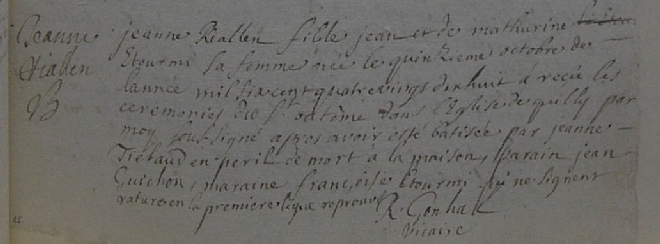 Jeanne
Riallen
B
jeanne Riallen fille jean et de mathurine
Etourmi sa femme née le quinzieme octobre de
lannée mil six cent quatre vings dix huit à reçu les
ceremonies du st batême dans l'Eglise de quilly par
moy soussigné apres avoir esté batisée par jeanne
Tiebaud en peril de mort à la maison, parain jean
Guichon, maraine françoise Etourmi qui ne signent
ratures en la premiere ligne reprouvé
R Gonhal
vicaire